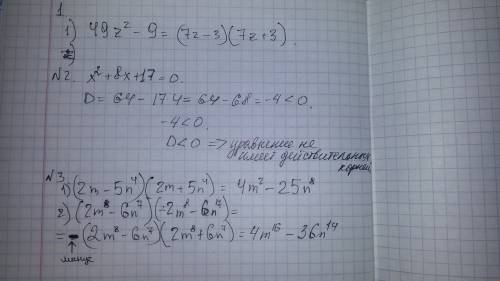 1
1) 49z² - 9 = (7z-3)(7z+3).
2)
№2. x²+8x+17=0.
D = 64 - 17·4 = 64 - 68 = -4 < 0.
-4 < 0.
D<0 => уравнение не
имеет действительных
корней
№3
1) (2m-5n⁴)(2m+5n⁴) = 4m² - 25n⁸
2) (2m⁸-6n⁷)(-2m⁸-6n⁷)=
= -(2m⁸-6n⁷)(2m⁸+6n⁷) = 4m¹⁶ - 36n¹⁴
минус